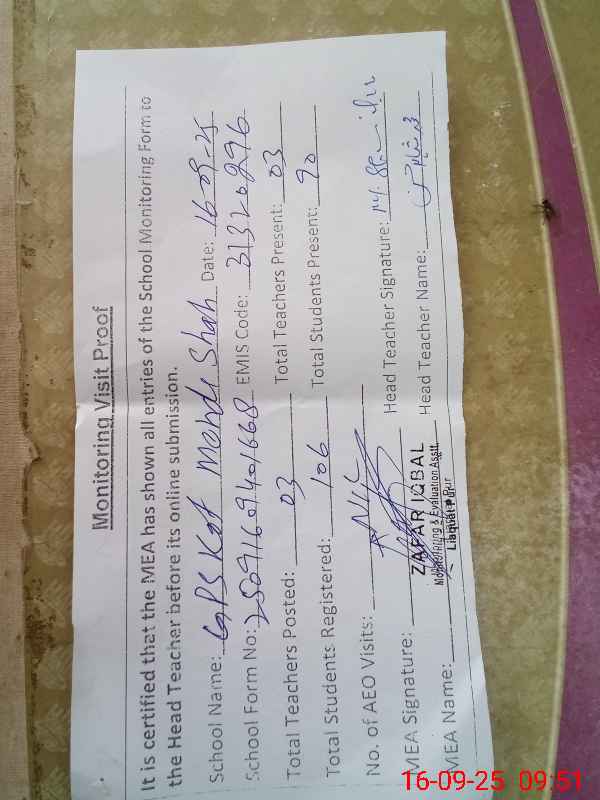 Monitoring Visit Proof
It is certified that the MEA has shown all entries of the School Monitoring Form to
the Head Teacher before its online submission.
School Name: GPS Kot Mehdi Shah Date: 16-09-25
School Form No: EMIS Code: 31320296
Total Teachers Posted: 03 Total Teachers Present: 03
Total Students Registered: 106 Total Students Present: 90
No. of AEO Visits: Nil
MEA Signature: Head Teacher Signature:
ZAFAR IQBAL
Monitoring & Evaluation Asstt.
Liaquat Pur
MEA Name: Head Teacher Name:
16-09-25 09:51